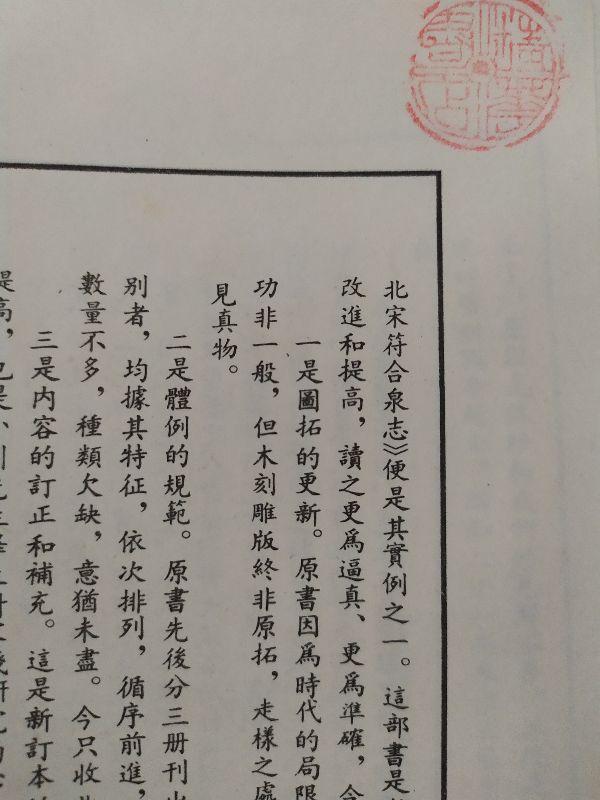 北宋符合泉志》便是其實例之一。這部書是
改進和提高，讀之更爲逼真、更爲準確，合
一是圖拓的更新。原書因爲時代的局限
功非一般，但木刻雕版終非原拓，走樣之處
見真物。
二是體例的規範。原書先後分三册刊出
別者，均據其特征，依次排列，循序前進，
數量不多，種類欠缺，意猶未盡。今只收
三是内容的訂正和補充。這是新訂本
提高，也是